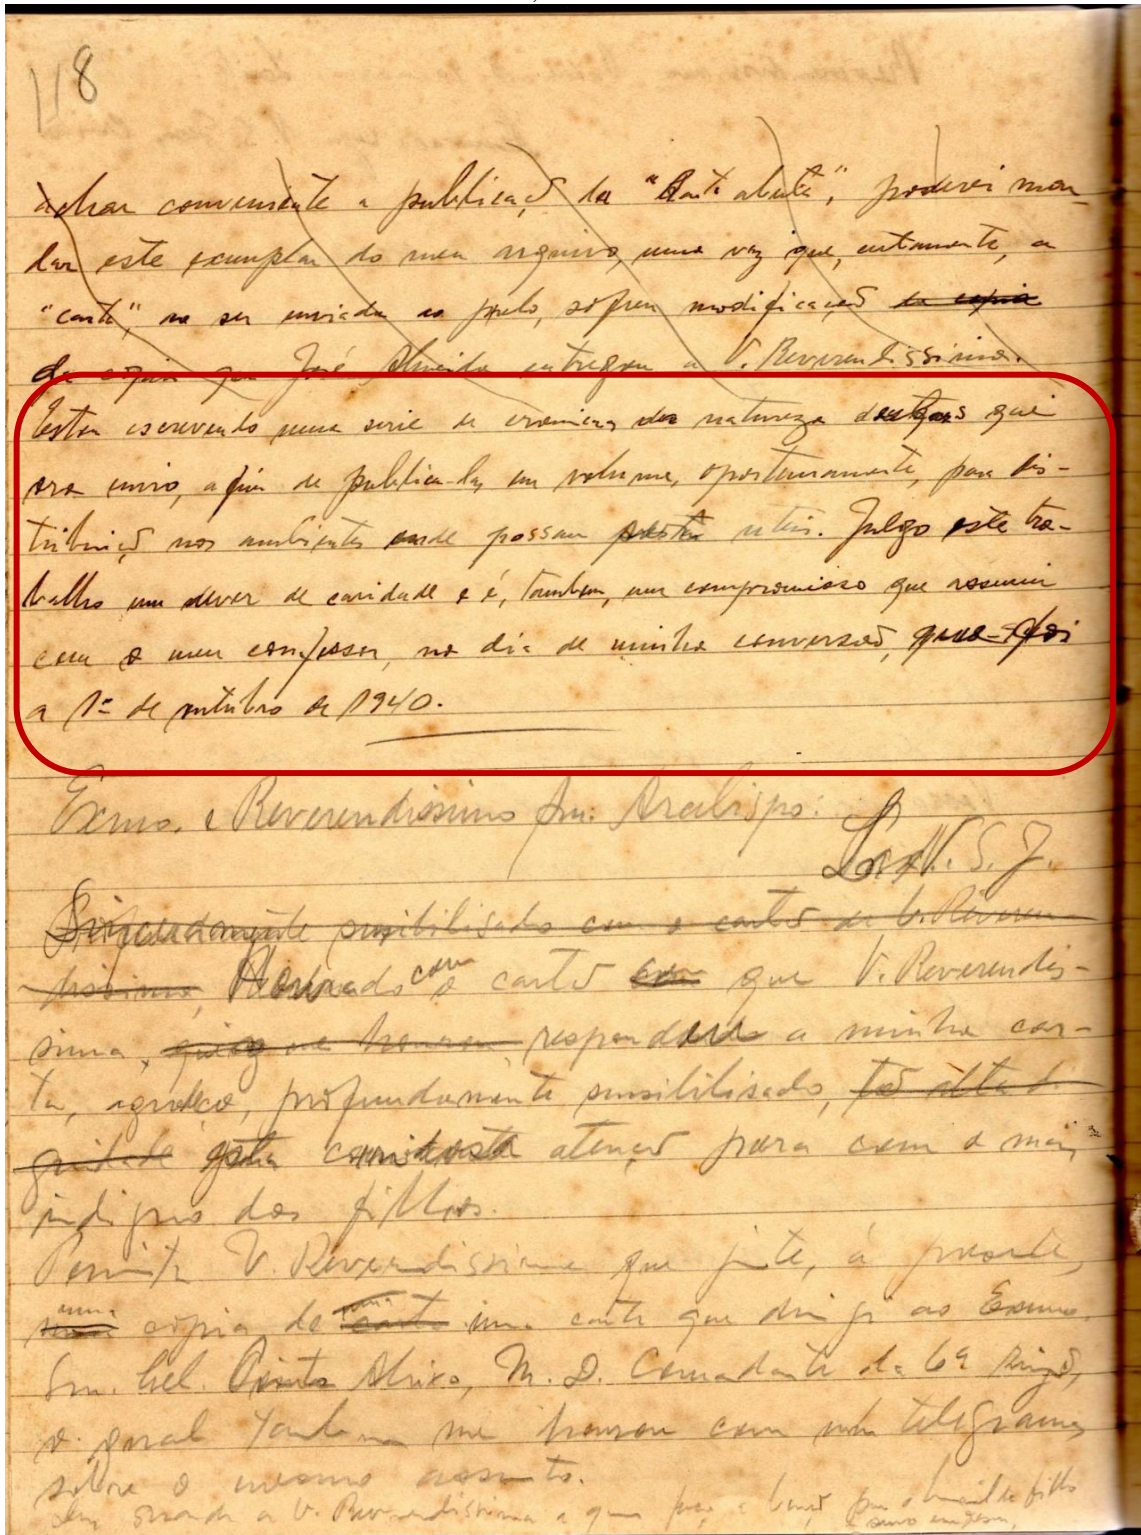 118
achar conveniente a publicaçõ da "Carta aberta", poderei man
dar este exemplar do meu arquivo, uma vez que, certamente, a
"carta", ao ser enviada ao prelo, sofreu modificaçaõ da copia
da copia que José Almeida entregou a V. Reverendissima.
Estou escrevendo uma serie de cronicas da natureza destas que
ora envio, afim de publica-las, em volume, oportunamente, para dis-
tribuiçõ nos ambientes onde possam uteis. Julgo este tra-
balho um dever de caridade e é, tambem, um compromisso que assumi
com o meu confessor, no dia de minha conversaõ, que foi
a 1º de outubro de 1940.
Exmo. e Reverendissimo Snr. Arcebispo:
L. N. S. J.
sensibilisado com o cartõ de V. Reveren
dissima, Honrado com o cartõ com que V. Reverendis-
sima, que me honrou, responder a minha car-
ta, agradeço, profundamente sensibilisado, tõ alta
esta atençõ para com o mais
indigno dos filhos.
Permita V. Reverendissima que junte, á presente,
uma copia de carta uma carta que dirigi ao Exmo.
Snr. Cel. Pinto Aleixo, M. D. Comandante da 6ª Regiõ,
o qual tambem me honrou com um telegrama
sobre o mesmo assunto.
V. Reverendissima a quem peço a bençõ humilde filho